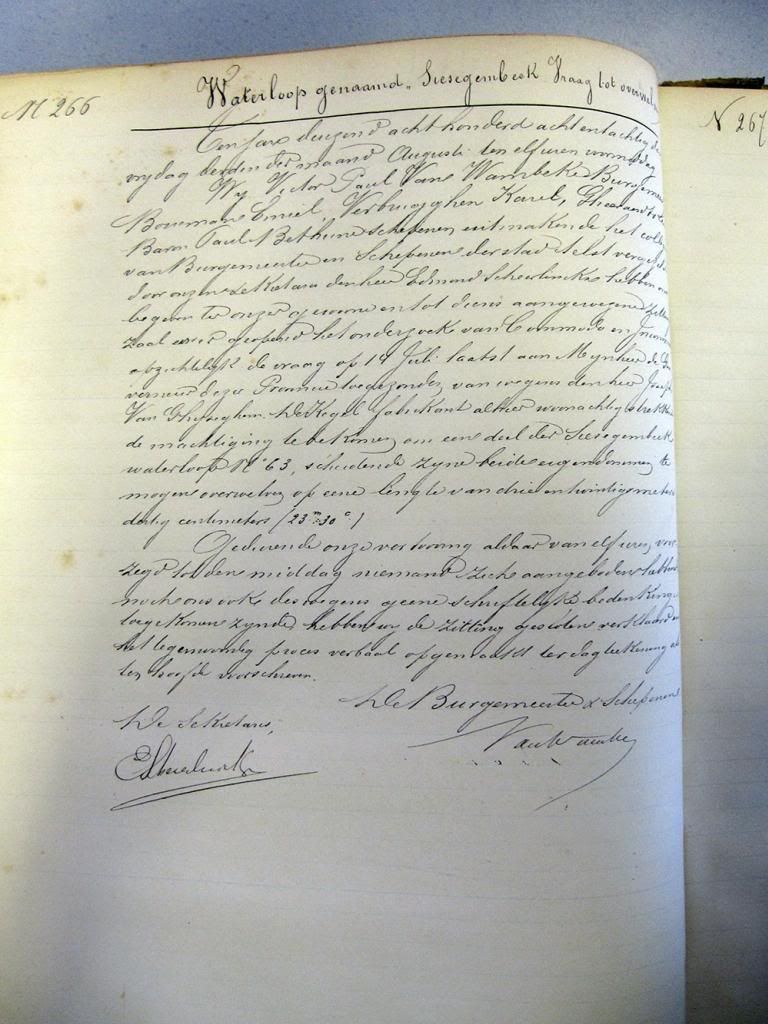 N 266
Waterloop genaamd „ Siesegembeek Vraag tot overwel
N 267
Ten jare duizend acht honderd acht en tachtig de
vrydag derden der maand Augusti ten elf uren voormiddag
Wy Victor Paul Van Wambeke Burgemee
Bouwman Emiel, Verbrugghen Karel,
Baron Paul Bethune Schepenen uitmakende het colle
van Burgemeester en Schepenen der stad Aelst verge
door onzen sekretaris den heer Edmond Scheerlinckx hebben
begeven ter onzer gewoone en tot dienst aangewezene zitting
zaal en er geopend het onderzoek van Commodo en Incom
opzichtelyk de vraag op 19 Juli laatst aan Mynheer de Gou
verneur dezer Provincie toegezonden van wegens den heer Joseph
Van Ghyseghem De Kegel fabrikant alhier woonachtig strekkende
de machtiging te bekomen om een deel der Siesegembeek
waterloop N° 63, scheidende zyne beide eigendommen te
mogen overwelven op eene lengte van drie en twintig meters
dertig centimeters (23m 30c)
Gedurende onze vertooning aldaar van elf uren, voor
zegd tot den middag niemand zich aangeboden hebbende
noch ons ook deswegens geene schriftelyke bedenking
toegekomen zynde, hebben wy de zitting gesloten verklaard en
het tegenwoordig proces verbaal opgemaakt ter dagteekening als
ten hoofde voorschreven.
De Burgemeester & Schepenen
De Sekretaris,
VanWambeke
EdScheerlinckx